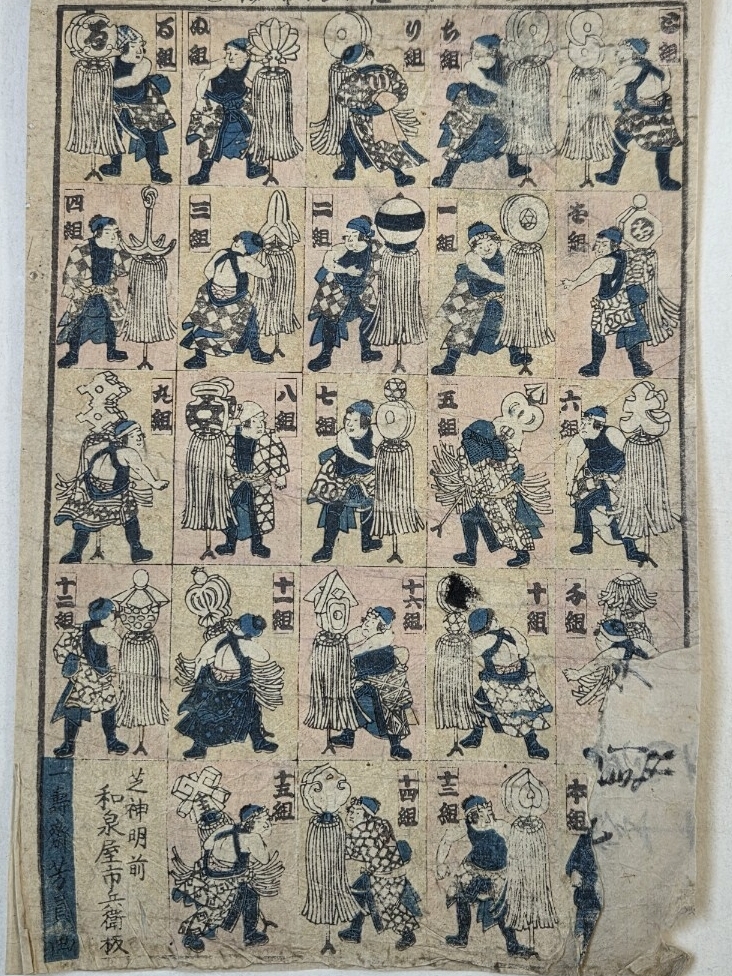 組
ち組
り組
ぬ組
る組
壱組
一組
二組
三組
四組
六組
五組
七組
八組
九組
千組
十組
十六組
十一組
十二組
本組
十三組
十四組
十五組
芝神明前
和泉屋市兵衛板
一壽齋芳員画